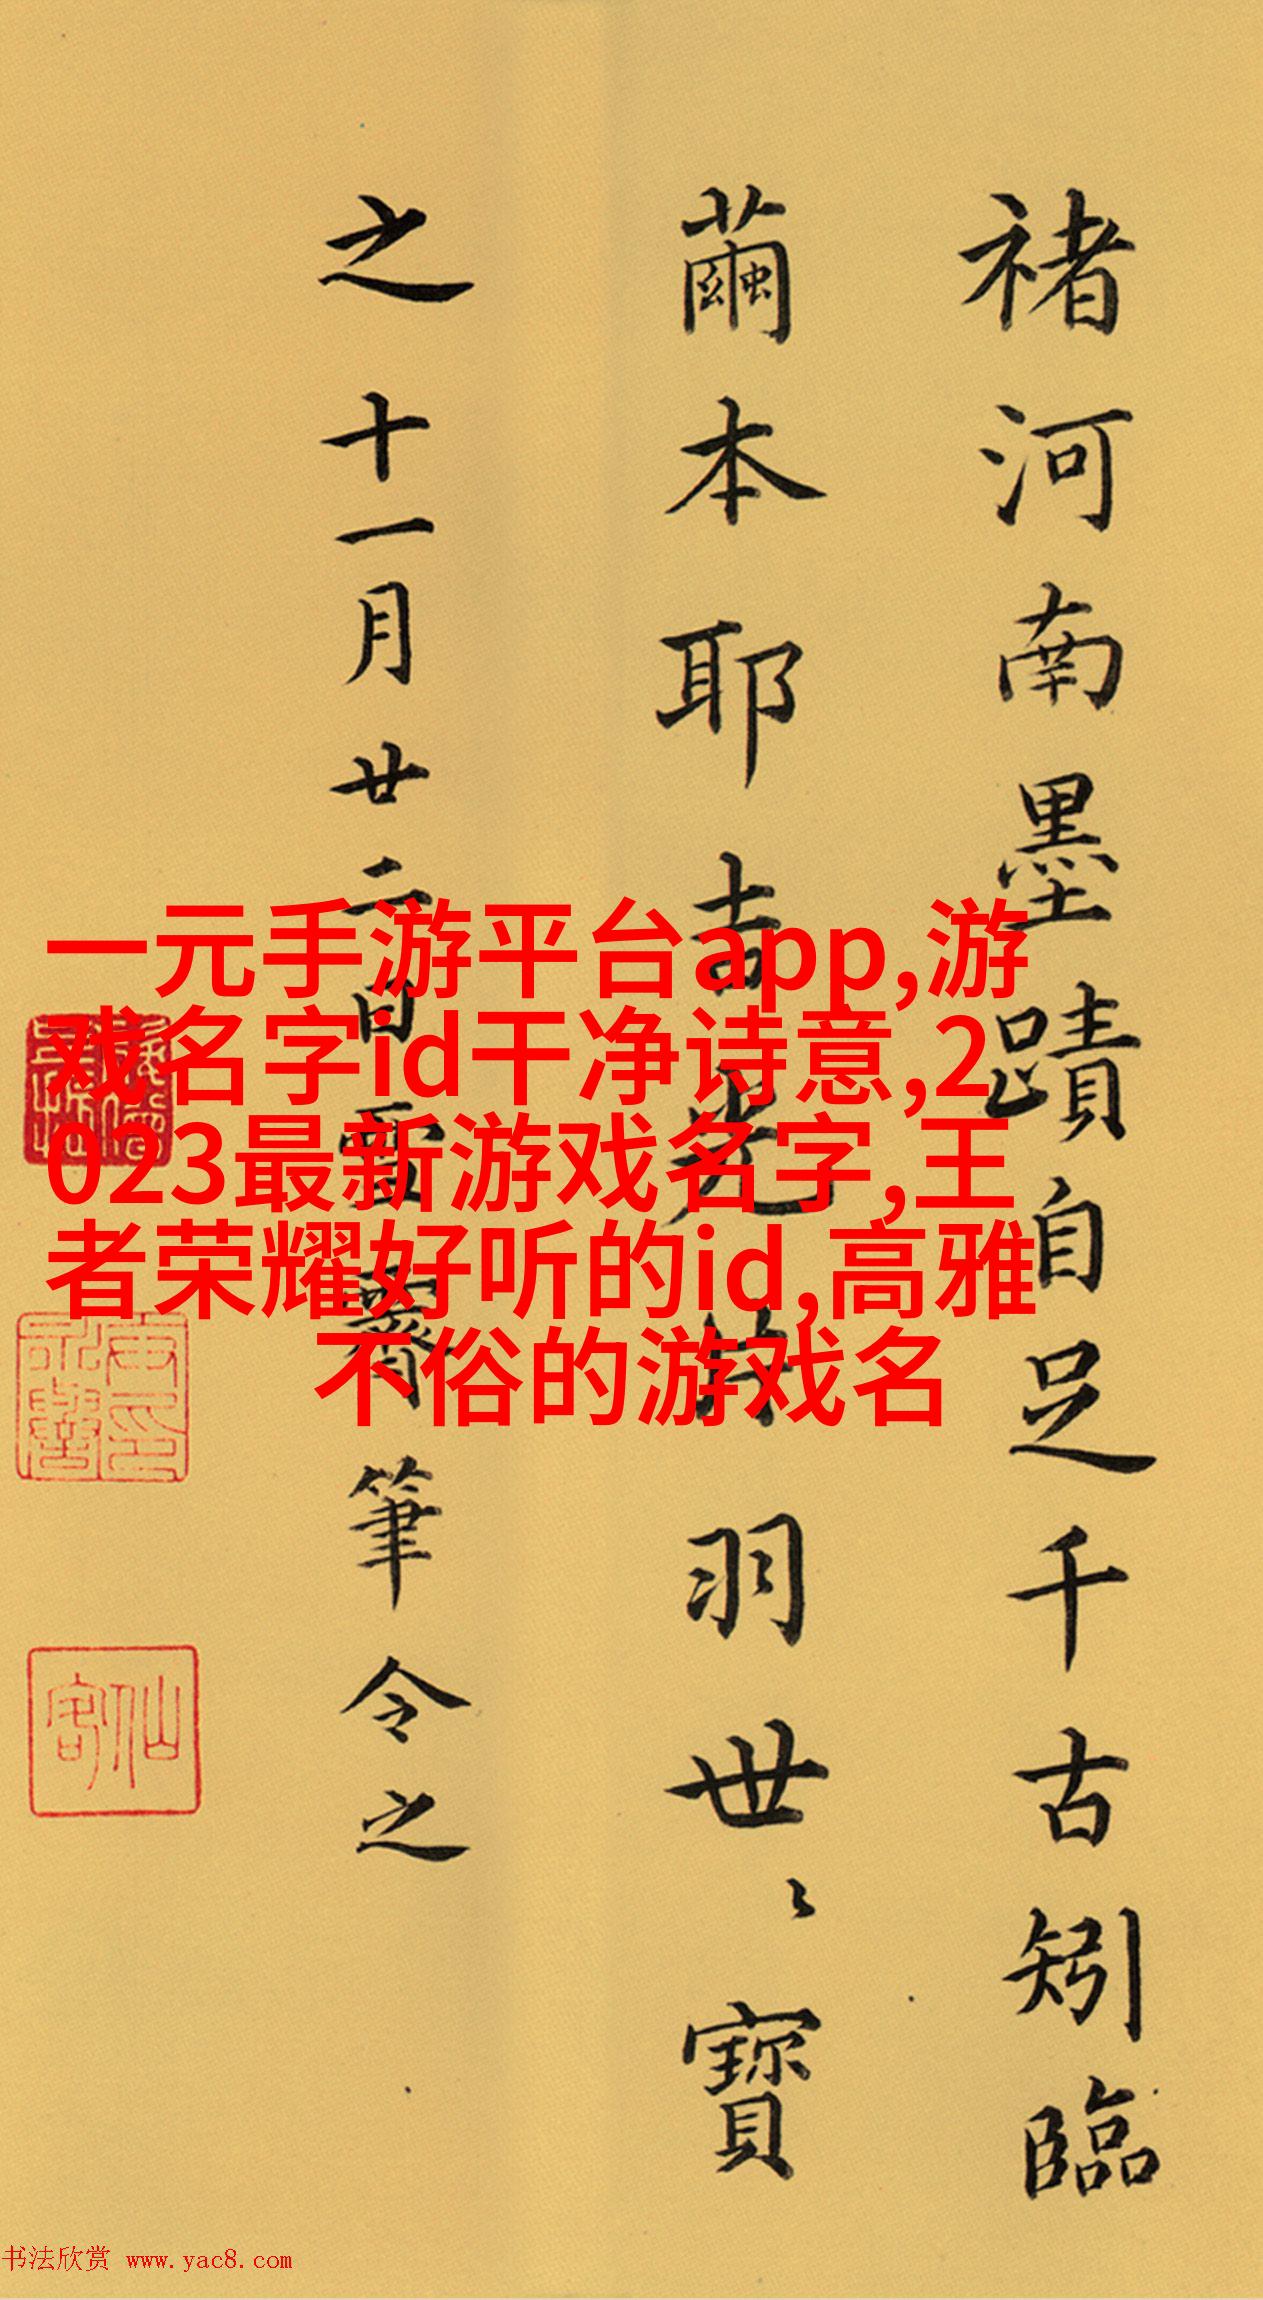 褚河南墨蹟自足千古矧臨
蘭本耶吉光片羽世〻寶
之十一月廿二日雪霽筆令之
一元手游平台app,游
戏名字id干净诗意,2
023最新游戏名字,王
者荣耀好听的id,高雅
不俗的游戏名
仙客
书法欣赏 www.yac8.com